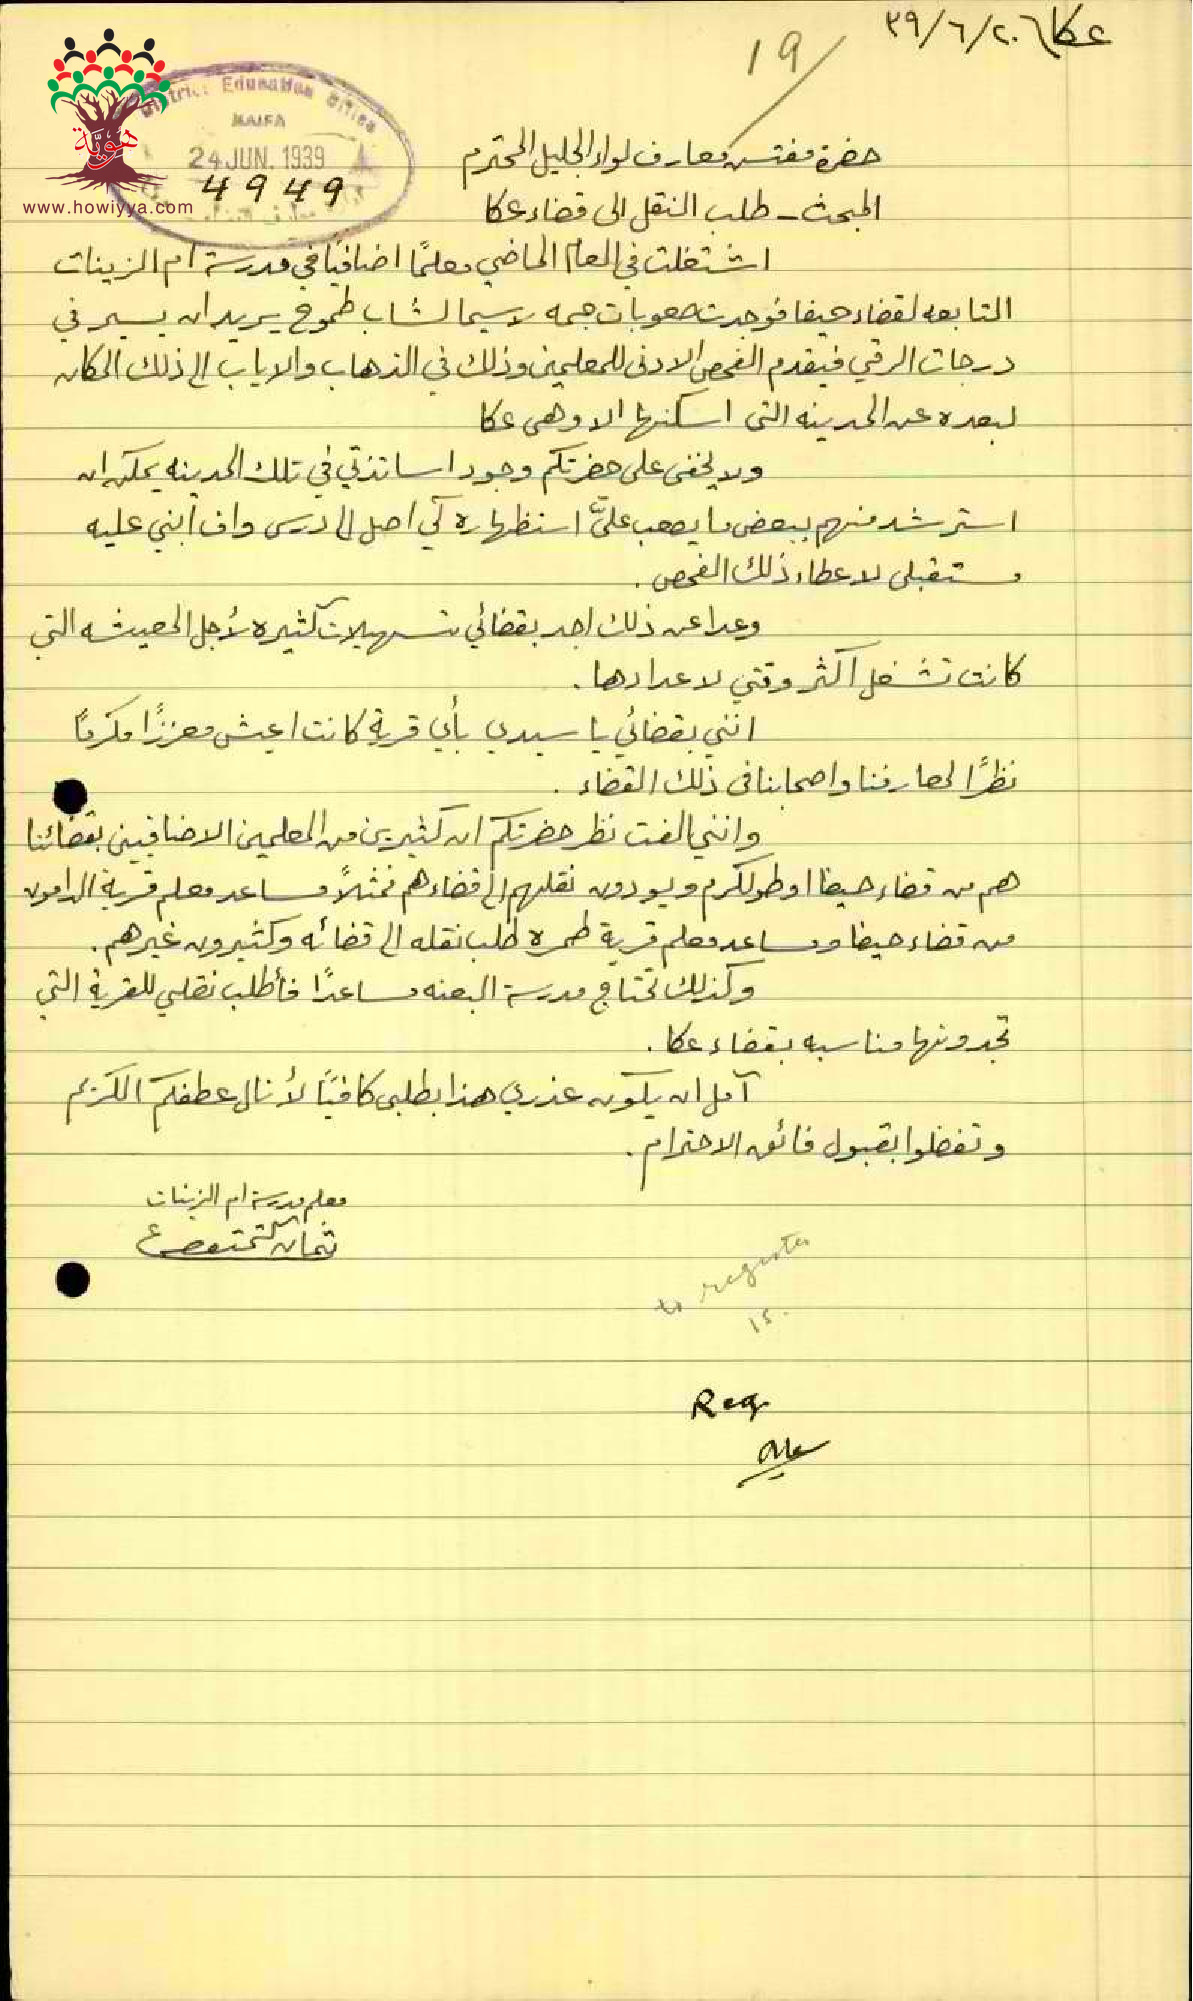 عكا ٢٠/٦/٣٩
19
District Education Office
HAIFA
24 JUN. 1939
4949
هوية
www.howiyya.com
حضرة مفتش معارف لواء الجليل المحترم
المبحث - طلب النقل الى قضاء عكا
اشتغلت في العام الماضي معلمًا اضافيًا في مدرسة ام الزينات
التابعه لقضاء حيفا فوجدت صعوبات جمه لاسيما لشاب طموح يريد ان يسير في
درجات الرقي فيقدم الفحص الادنى للمعلمين وذلك في الذهاب والاياب الى ذلك المكان
لبعده عن المدينه التي اسكنها الا وهي عكا
ولا يخفى على حضرتكم وجود اساتذتي في تلك المدينه يمكن ان
استرشد منهم ببعض ما يصعب عليَّ استظهاره كي اصل الى درس واف ابني عليه
مستقبلي لاعطاء ذلك الفحص .
وعدا عن ذلك اجد بقضائي تسهيلات كثيره لأجل المعيشه التي
كانت تشغل اكثر وقتي لاعدادها .
انني بقضائي يا سيدي بأي قرية كانت اعيش معززًا مكرمًا
نظرًا لمعارفنا واصحابنا في ذلك القضاء .
وانني الفت نظر حضرتكم ان كثيرين من المعلمين الاضافيين بقضائنا
هم من قضاء حيفا او طولكرم ويودون نقلهم الى قضاءهم فمثلاً مساعد معلم قرية الدامون
من قضاء حيفا ومساعد معلم قرية طمره طلب نقله الى قضائه وكثيرون غيرهم .
وكذلك تحتاج مدرسة البعنه مساعدًا فأطلب نقلي للقرية التي
تجدونها مناسبه بقضاء عكا .
آمل ان يكون عذري هذا بطلبي كافيًا لأنال عطفكم الكريم
وتفضلوا بقبول فائق الاحترام .
معلم مدرسة ام الزينات
to register
Reg